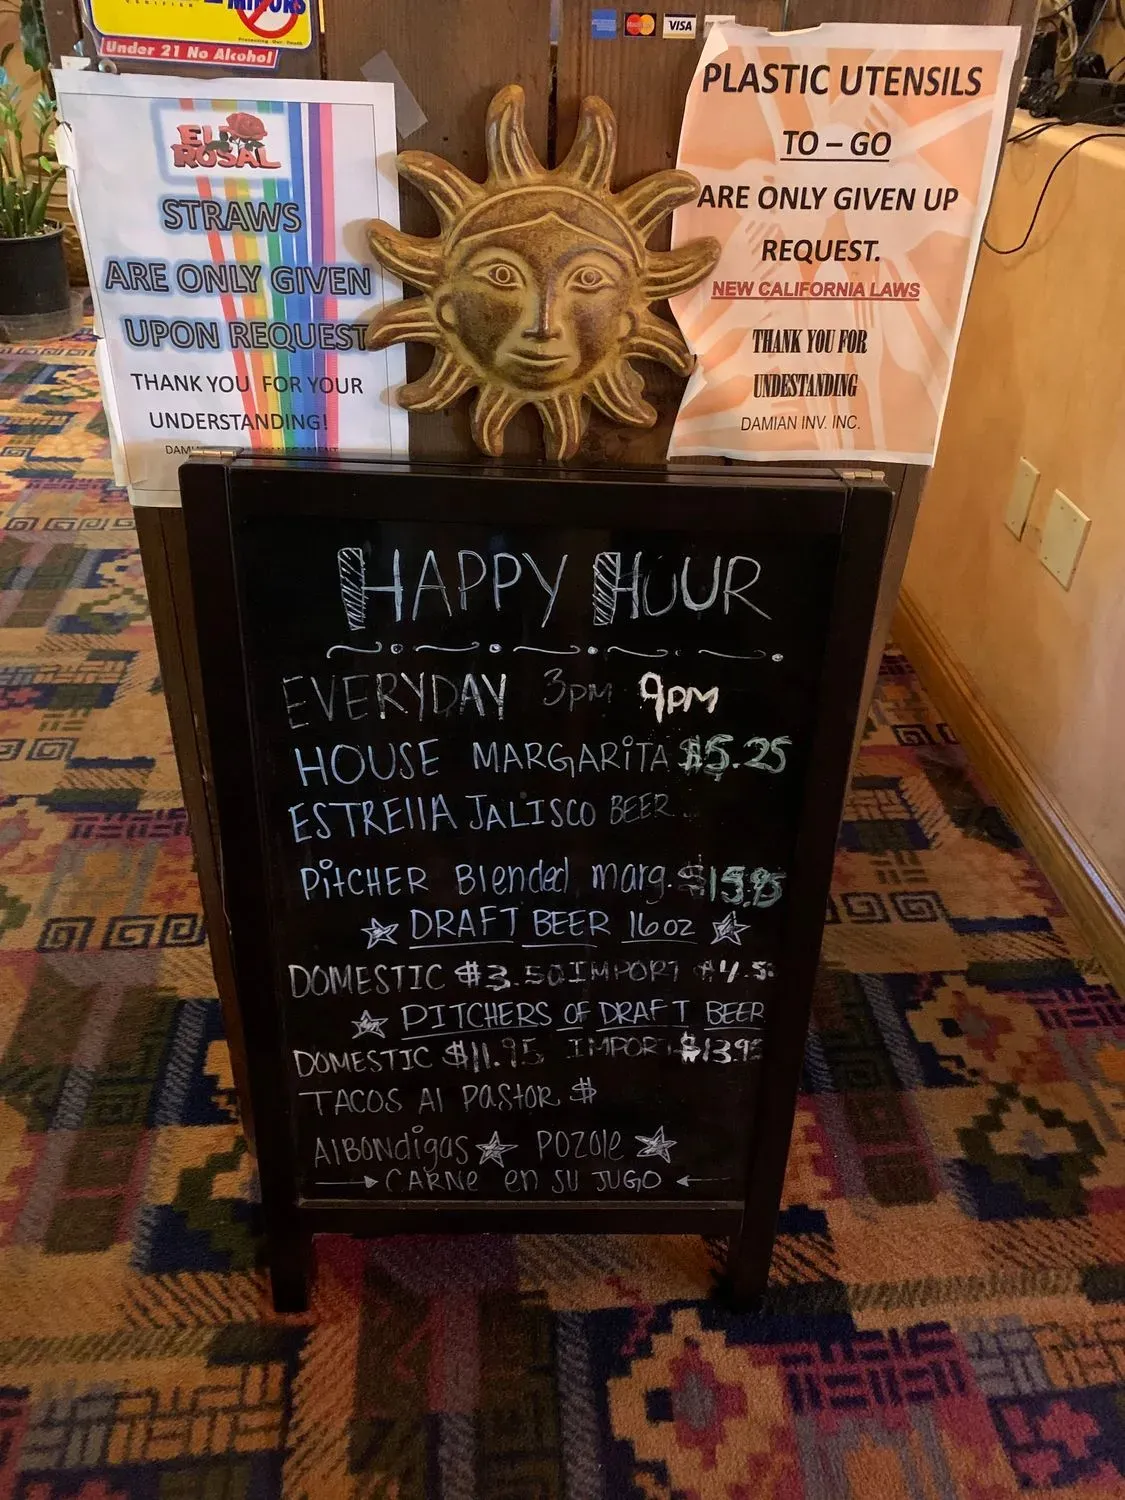 MINORS
Under 21 No Alcohol
VISA
El ROSAL
STRAWS
ARE ONLY GIVEN
UPON REQUEST
THANK YOU FOR YOUR
UNDERSTANDING!
PLASTIC UTENSILS
TO – GO
ARE ONLY GIVEN UP
REQUEST.
NEW CALIFORNIA LAWS
THANK YOU FOR
UNDESTANDING
DAMIAN INV. INC.
HAPPY HOUR
EVERYDAY 3PM 9PM
HOUSE MARGARiTA $5.25
ESTREllA JALISCO BEER
PitCHER Blended marg. $15.95
DRAFT BEER 16 oz
DOMESTIC $3.50 IMPORT $4.50
PITCHERS OF DRAFT BEER
DOMESTIC $11.95 IMPORT $13.95
TACOS Al PastoR $
AlBONdigas POZOle
CARNe en SU JUGO